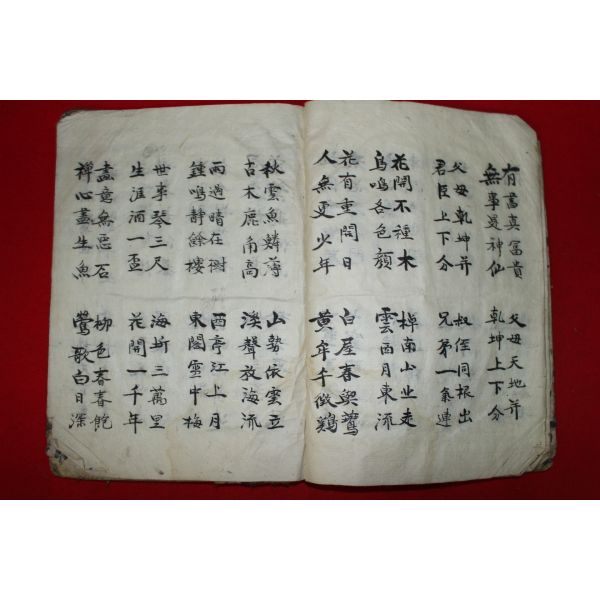 有書真富貴
無事是神仙
父母乾坤并
君臣上下分
花開不種木
鳥鳴各色顔
花有重開日
人無更少年
父母天地并
乾坤上下分
叔侄同根出
兄弟一氣連
棹南山北走
雲西月東流
白屋春
黃年千鷄
秋雲魚鱗薄
古木鹿角高
雨過晴在樹
鍾鳴静餘樓
世事琴三尺
生涯酒一盃
盡意無惡石
禪心盡生魚
山勢依雲立
溪聲放海流
西亭江上月
東閣雪中梅
海折三萬里
花開一千年
柳色春春飽
鶯歌白日深